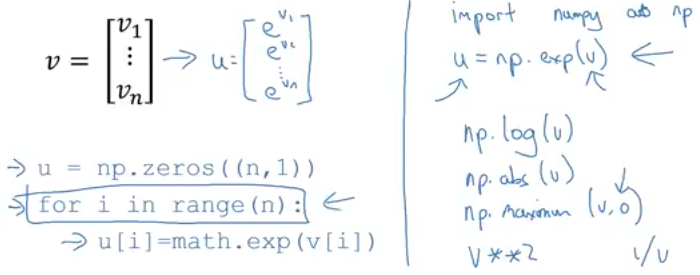 v = [v₁ ⋮ vₙ] → u = [e^v₁ e^v₂ ⋮ e^vₙ]
→ u = np.zeros((n,1))
→ for i in range(n): ←
→ u[i]=math.exp(v[i])
import numpy as np
u = np.exp(v) ←
np.log(v)
np.abs(v)
np.maximum(v,0)
v**2 1/v